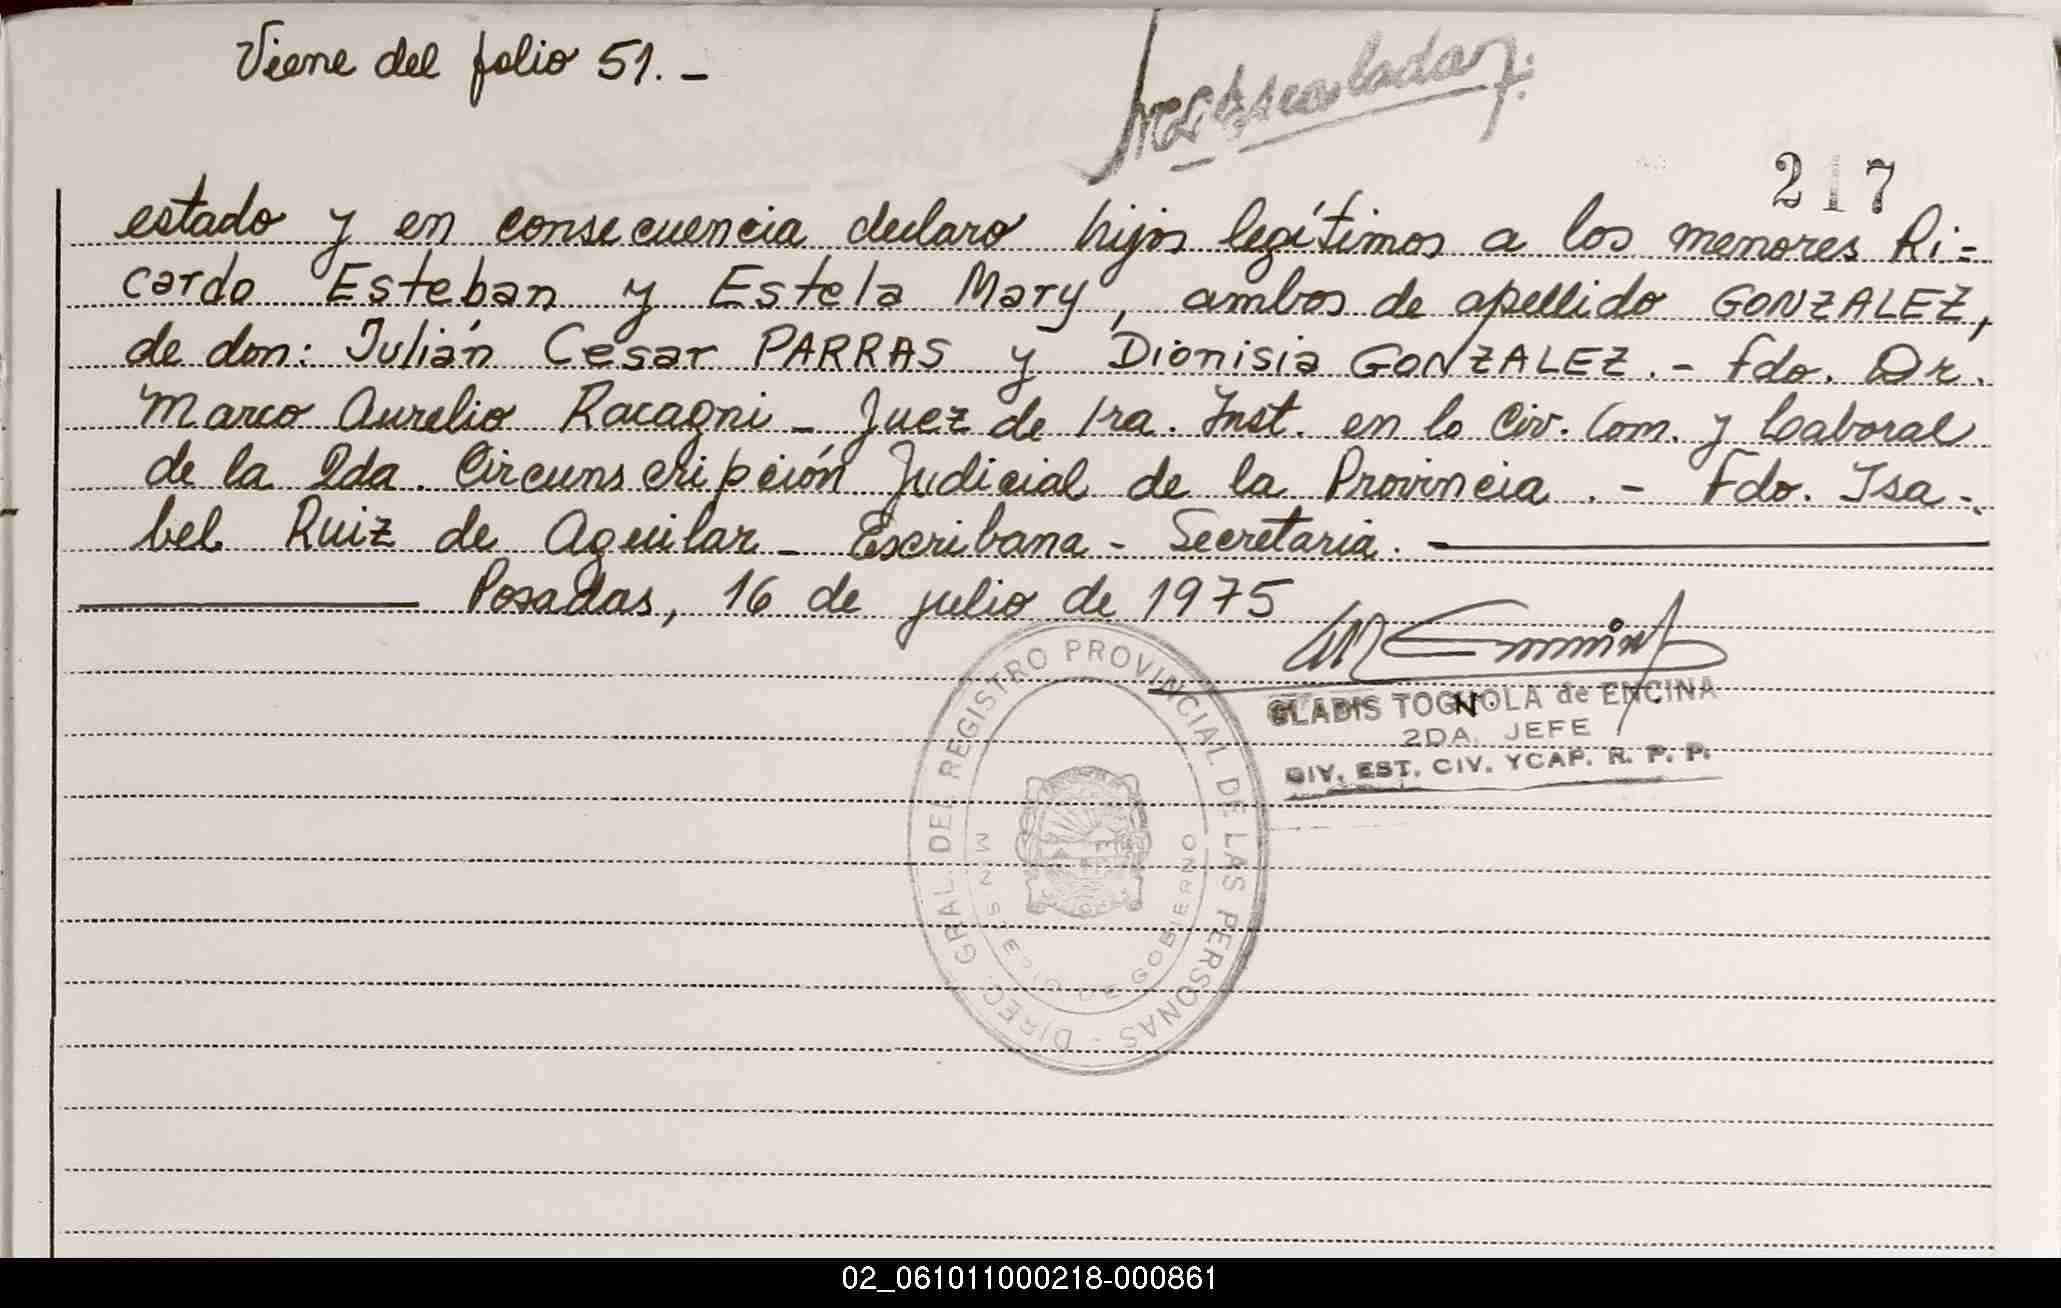 Viene del folio 51.-
217
estado y en consecuencia declaro hijos legítimos a los menores Ri=
cardo Esteban y Estela Mary, ambos de apellido GONZALEZ,
de don: Julián Cesar PARRAS y Dionisia GONZALEZ.- Fdo. Dr.
Marco Aurelio Racagni - Juez de 1ra. Inst. en lo Civ. Com. y Laboral
de la 2da. Circunscripción Judicial de la Provincia.- Fdo. Isa-
bel Ruiz de Aguilar - Escribana - Secretaria.
Posadas, 16 de julio de 1975
GLADIS TOGNOLA de ENCINA
2DA. JEFE
DIV. EST. CIV. YCAP. R. P. P.
DIREC. GRAL. DEL REGISTRO PROVINCIAL DE LAS PERSONAS -
MINISTERIO DE GOBIERNO
02_061011000218-000861